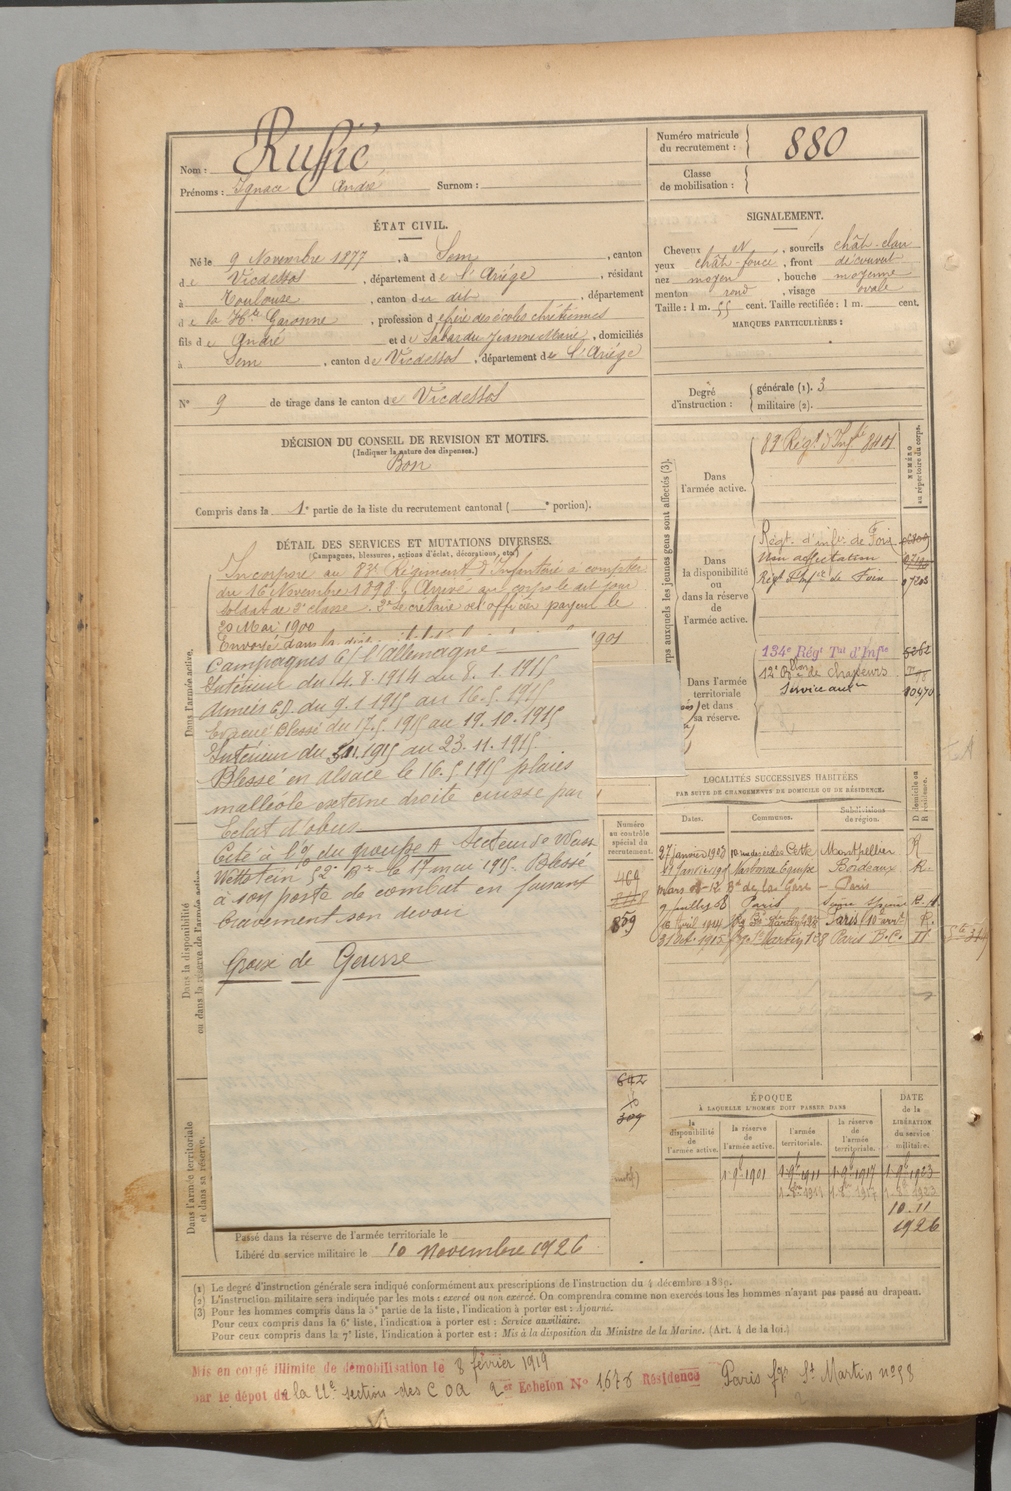 Nom : Ruffié
Prénoms : Ignace André Surnom :
Numéro matricule du recrutement : 880
Classe de mobilisation :
ÉTAT CIVIL.
Né le 9 Novembre 1877, à Sem, canton
de Vicdessos, département de l'Ariége, résidant
à Toulouse, canton du dit, département
de la Hte Garonne, profession de frère des écoles chrétiennes
fils de André et de Jeanne Marie, domiciliés
à Sem, canton de Vicdessos, département de l'Ariége
N° 9 de tirage dans le canton de Vicdessos
SIGNALEMENT.
Cheveux N, sourcils chât-clair
yeux chât-foncé, front découvert
nez moyen, bouche moyenne
menton rond, visage ovale
Taille : 1 m. 55 cent. Taille rectifiée : 1 m. cent.
MARQUES PARTICULIÈRES :
Degré d'instruction : générale (1). 3
militaire (2).
DÉCISION DU CONSEIL DE REVISION ET MOTIFS.
(Indiquer la nature des dispenses.)
Bon
Compris dans la 1e partie de la liste du recrutement cantonal ( e portion).
DÉTAIL DES SERVICES ET MUTATIONS DIVERSES.
(Campagnes, blessures, actions d'éclat, décorations, etc.)
Incorporé au 83e Régiment d'Infanterie à compter
du 16 Novembre 1898. Arrivé au corps le dit jour
soldat de 2e classe. Secrétaire de l'officier payeur le
20 Mai 1900
1901
Campagnes c/ l'Allemagne
Intérieur du 4.8.1914 au 8.1.1915
Armées du 9.1.1915 au 16.5.1915
Evacué Blessé du 17.5.1915 au 19.10.1915
Intérieur du 1915 au 23.11.1915
Blessé en Alsace le 16.5.1915 plaies
malléole externe droite cuisse par
Eclat d'obus
Cité à l'o/ du groupe A Secteur de
Wettstein 52e Bn le 17 mai 1915. Blessé
à son poste de combat en faisant
bravement son devoir
Croix de Guerre
Passé dans la réserve de l'armée territoriale le
Libéré du service militaire le 10 novembre 1926
Corps auxquels les jeunes gens sont affectés (3).
NUMÉRO au répertoire du corps.
Dans l'armée active.
83 Régt d'Infie 8401
Dans la disponibilité ou dans la réserve de l'armée active.
Régt. d'infie. de Foix
Non affectation
Régt d'Infie de Foix 97203
Dans l'armée territoriale et dans sa réserve.
134e Régt Tal d'Infie 5262
12e Bllon de chasseurs
Service auxre 10470
Dans l'armée active.
Dans la disponibilité ou dans la réserve de l'armée active.
Dans l'armée territoriale et dans sa réserve.
LOCALITÉS SUCCESSIVES HABITÉES
PAR SUITE DE CHANGEMENTS DE DOMICILE OU DE RÉSIDENCE.
Numéro au contrôle spécial du recrutement.
Dates. Communes. Subdivisions de région. D domicile ou R résidence.
27 janvier 1903 Cette Montpellier R
Narbonne Bordeaux R.
mars Bd de la Gare Paris
9 juillet 08 Paris
avril 1914 St Martin Paris R.
31 oct. 1915 St Martin 108 Paris B.C.
464
859
642
309
ÉPOQUE
À LAQUELLE L'HOMME DOIT PASSER DANS
la disponibilité de l'armée active. la réserve de l'armée active. l'armée territoriale. la réserve de l'armée territoriale. DATE de la LIBÉRATION du service militaire.
1-9bre 1901 1-9bre 1911 1-9bre 1917 1-9bre 1923
10-11
1926
(1) Le degré d'instruction générale sera indiqué conformément aux prescriptions de l'instruction du 4 décembre 1889.
(2) L'instruction militaire sera indiquée par les mots : exercé ou non exercé. On comprendra comme non exercés tous les hommes n'ayant pas passé au drapeau.
(3) Pour les hommes compris dans la 5e partie de la liste, l'indication à porter est : Ajourné.
Pour ceux compris dans la 6e liste, l'indication à porter est : Service auxiliaire.
Pour ceux compris dans la 7e liste, l'indication à porter est : Mis à la disposition du Ministre de la Marine. (Art. 4 de la loi.)
Mis en congé illimité de démobilisation le 8 février 1919
par le dépôt de la 22e section des C O A 2er Echelon N° 1676 Résidence Paris fg St Martin n° 98